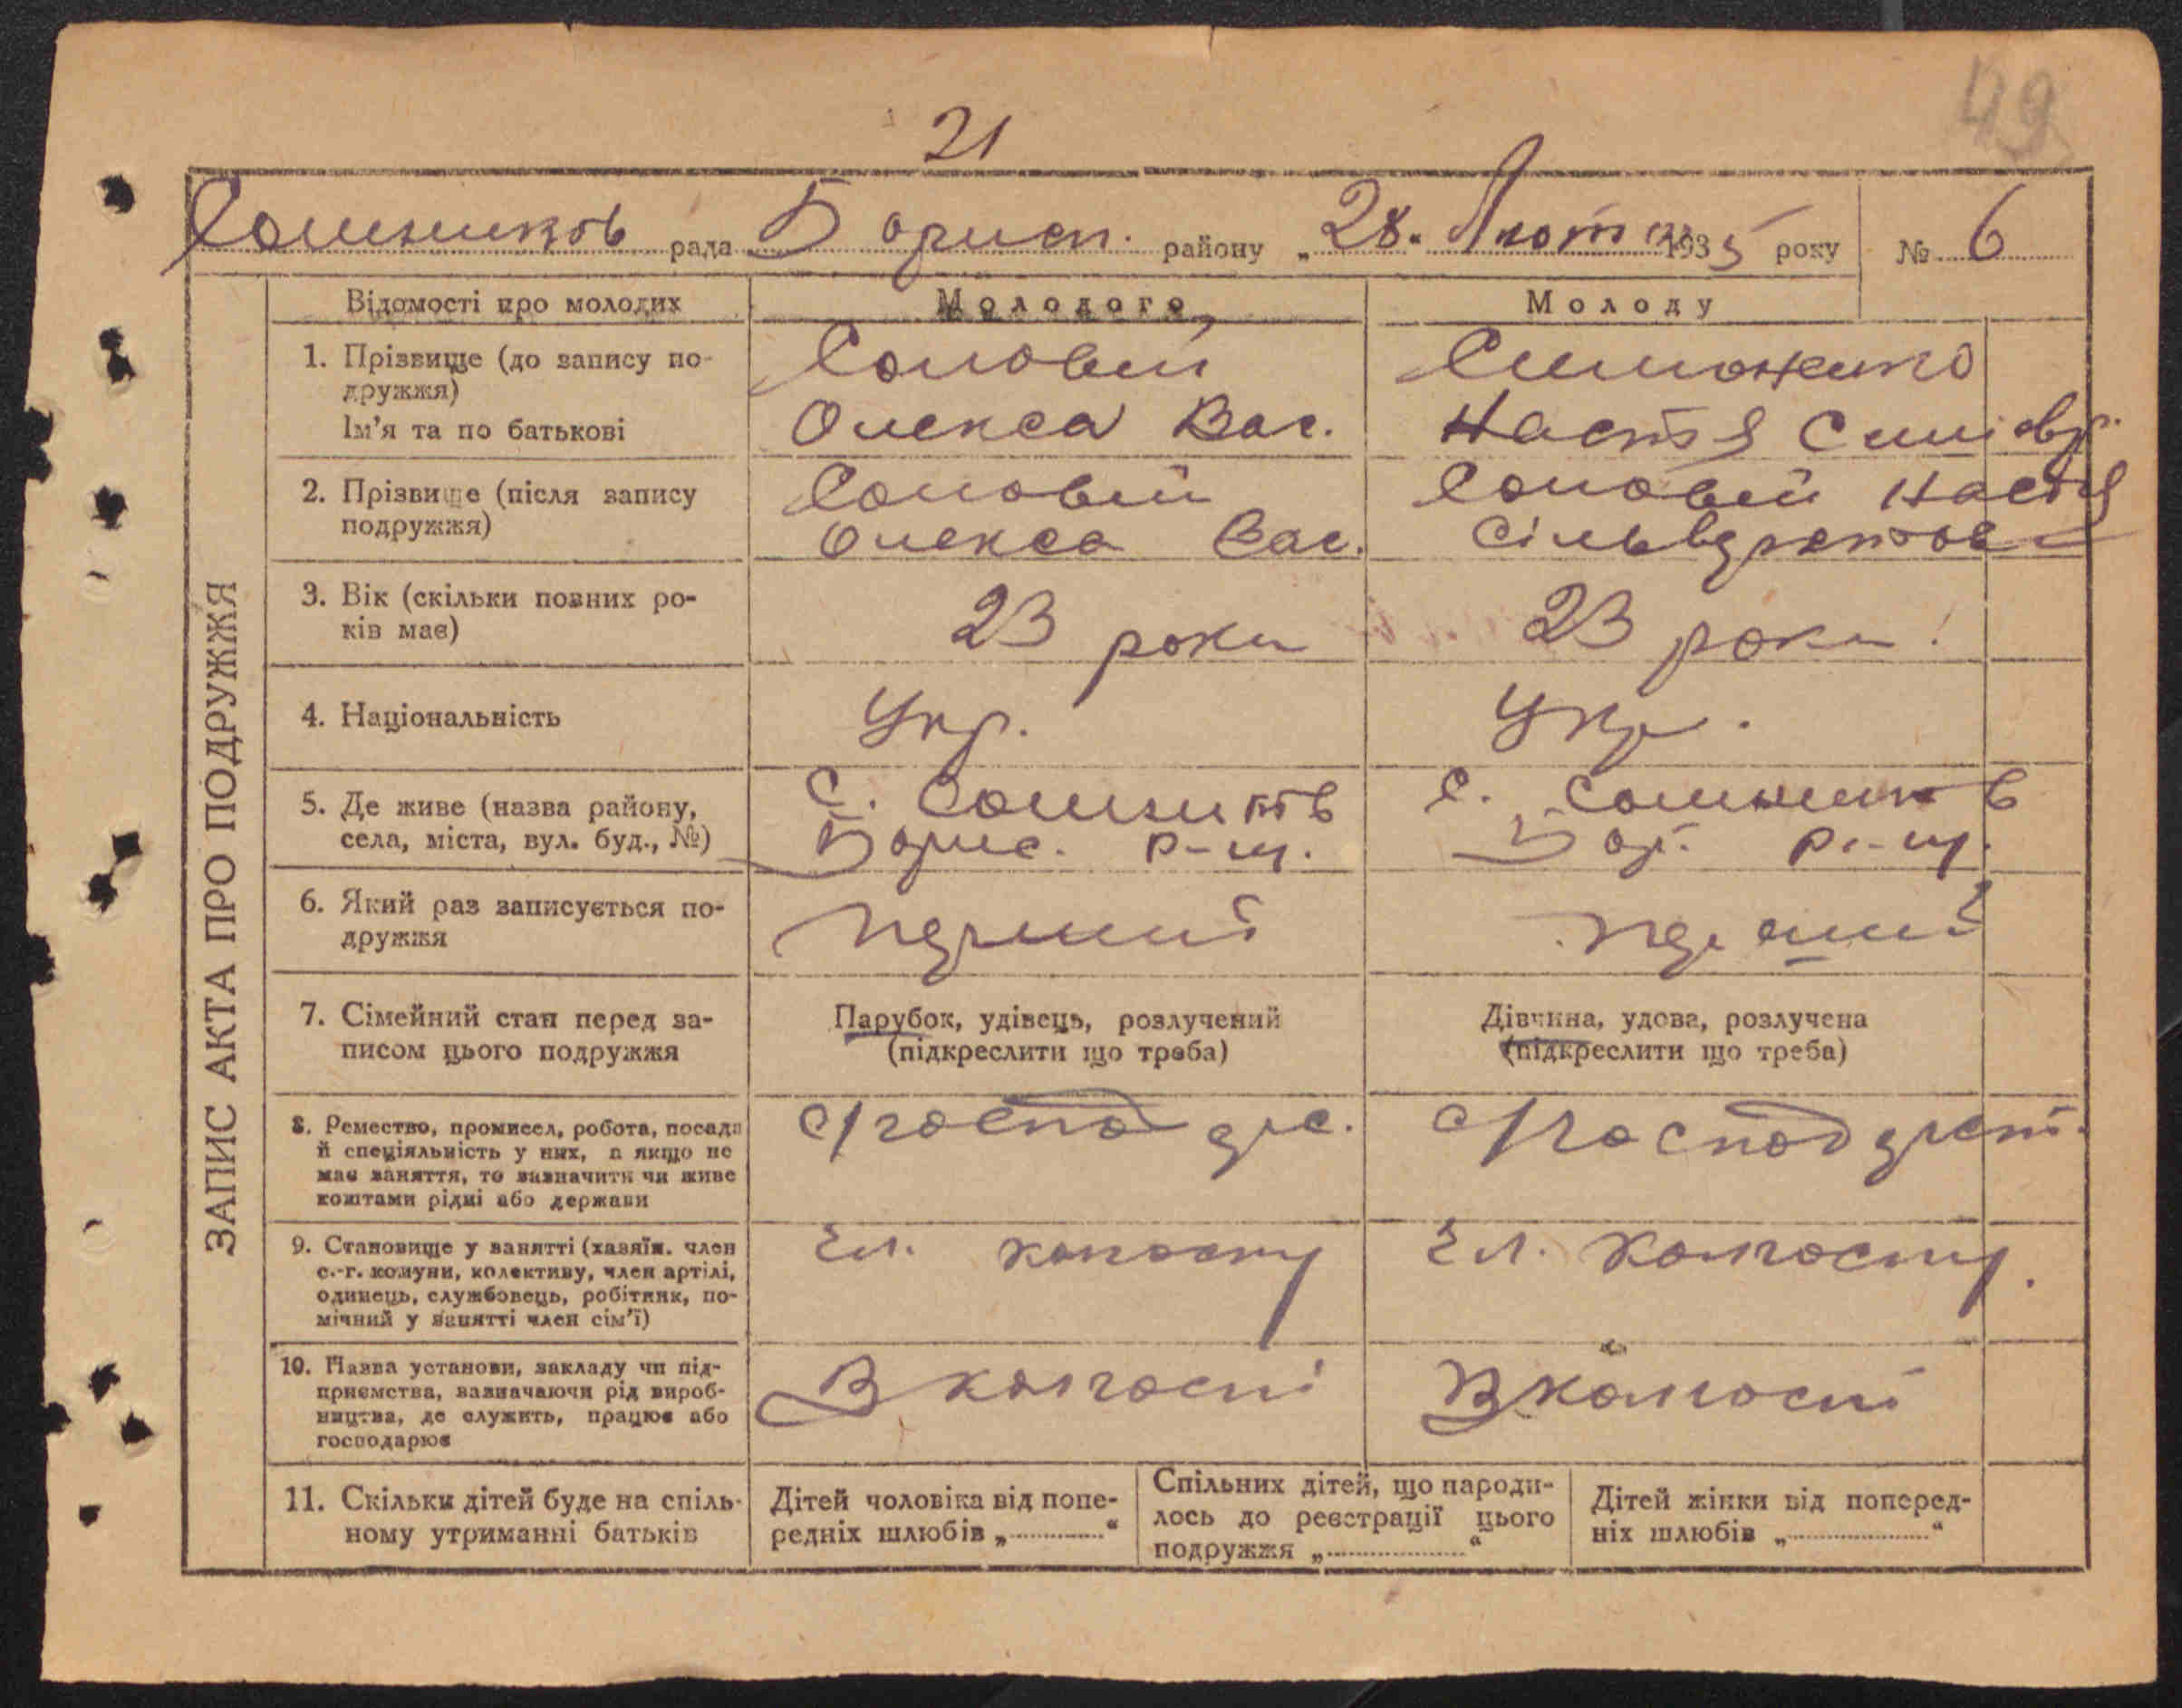 49
21
Сошников рада Борисп. району „28“ Лютого 1935 року № 6
ЗАПИС АКТА ПРО ПОДРУЖЖЯ
Відомості про молодих
Молодого
Молоду
1. Прізвище (до запису по-
дружжя)
Ім'я та по батькові
Соловей
Олекса Вас.
Симоненко
Настя
2. Прізвище (після запису
подружжя)
Соловей
Олекса Вас.
Соловей Настя
3. Вік (скільки повних ро-
ків має)
23 роки
23 роки
4. Національність
Укр.
Укр.
5. Де живе (назва району,
села, міста, вул. буд., №)
с. Сошників
Борис. р-ну.
с. Сошників
Бор. р-ну.
6. Який раз записується по-
дружжя
перший
перший
7. Сімейний стан перед за-
писом цього подружжя
Парубок, удівець, розлучений
(підкреслити що треба)
Дівчина, удова, розлучена
(підкреслити що треба)
8. Ремество, промисел, робота, посада
й спеціяльність у них, а якщо не
має заняття, то зазначити чи живе
коштами рідні або держави
с/господарс.
с/господарст.
9. Становище у занятті (хазяїн. член
с.-г. комуни, колективу, член артілі,
одинець, службовець, робітник, по-
мічний у занятті член сім'ї)
Чл. колгоспу
Чл. колгоспу.
10. Назва установи, закладу чи під-
приємства, зазначаючи рід вироб-
ництва, де служить, працює або
господарює
В колгоспі
В колгоспі
11. Скільки дітей буде на спіль-
ному утриманні батьків
Дітей чоловіка від попе-
редніх шлюбів „ “
Спільних дітей, що народи-
лось до реєстрації цього
подружжя „ “
Дітей жінки від поперед-
ніх шлюбів „ “